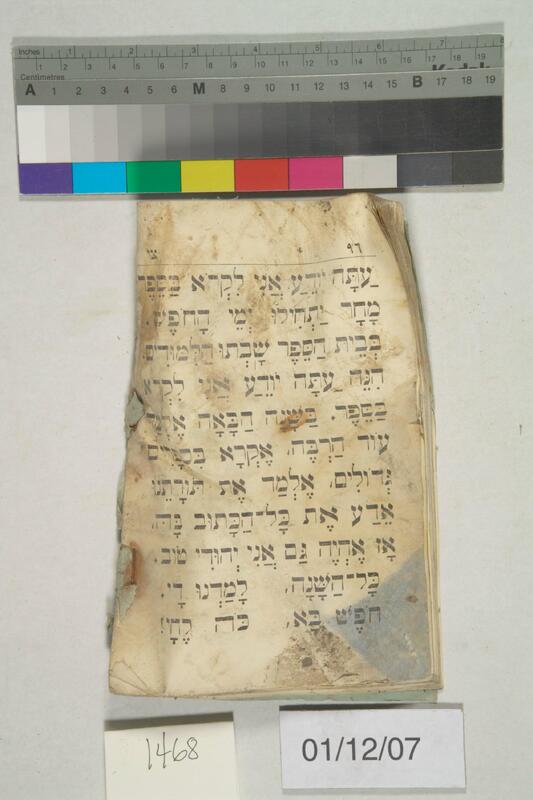 Inches 1 2 3 4 5 6 7 8
1 2 3 4 5 6 7 8 9 10 11 12 13 14 15 16 17 18 19
Centimetres Kodak
A 1 2 3 4 5 6 M 8 9 10 11 12 13 14 15 B 17 18 19
צו
עַתָּה יוֹדֵעַ אֲנִי לִקְרֹא בַּסֵּפֶר
מָחָר יַתְחִילוּ יְמֵי הַחֹפֶשׁ.
בְּבֵית הַסֵּפֶר שָׁבְתוּ הַלִּמּוּדִים.
הִנֵּה עַתָּה יוֹדֵעַ אֲנִי לִקְרֹא
בַּסֵּפֶר. בַּשָּׁנָה הַבָּאָה
עוֹד הַרְבֵּה. אֶקְרָא
גְּדוֹלִים. אֶלְמַד אֶת תּוֹרָתֵנוּ
אֵדַע אֶת כָּל־הַכָּתוּב בָּהּ.
אָז אֶהְיֶה גַם אֲנִי יְהוּדִי טוֹב.
כָּל־הַשָּׁנָה לָמַדְנוּ דָי.
חֹפֶשׁ בָּא. כֹּה לֶחָי!
1468
01/12/07